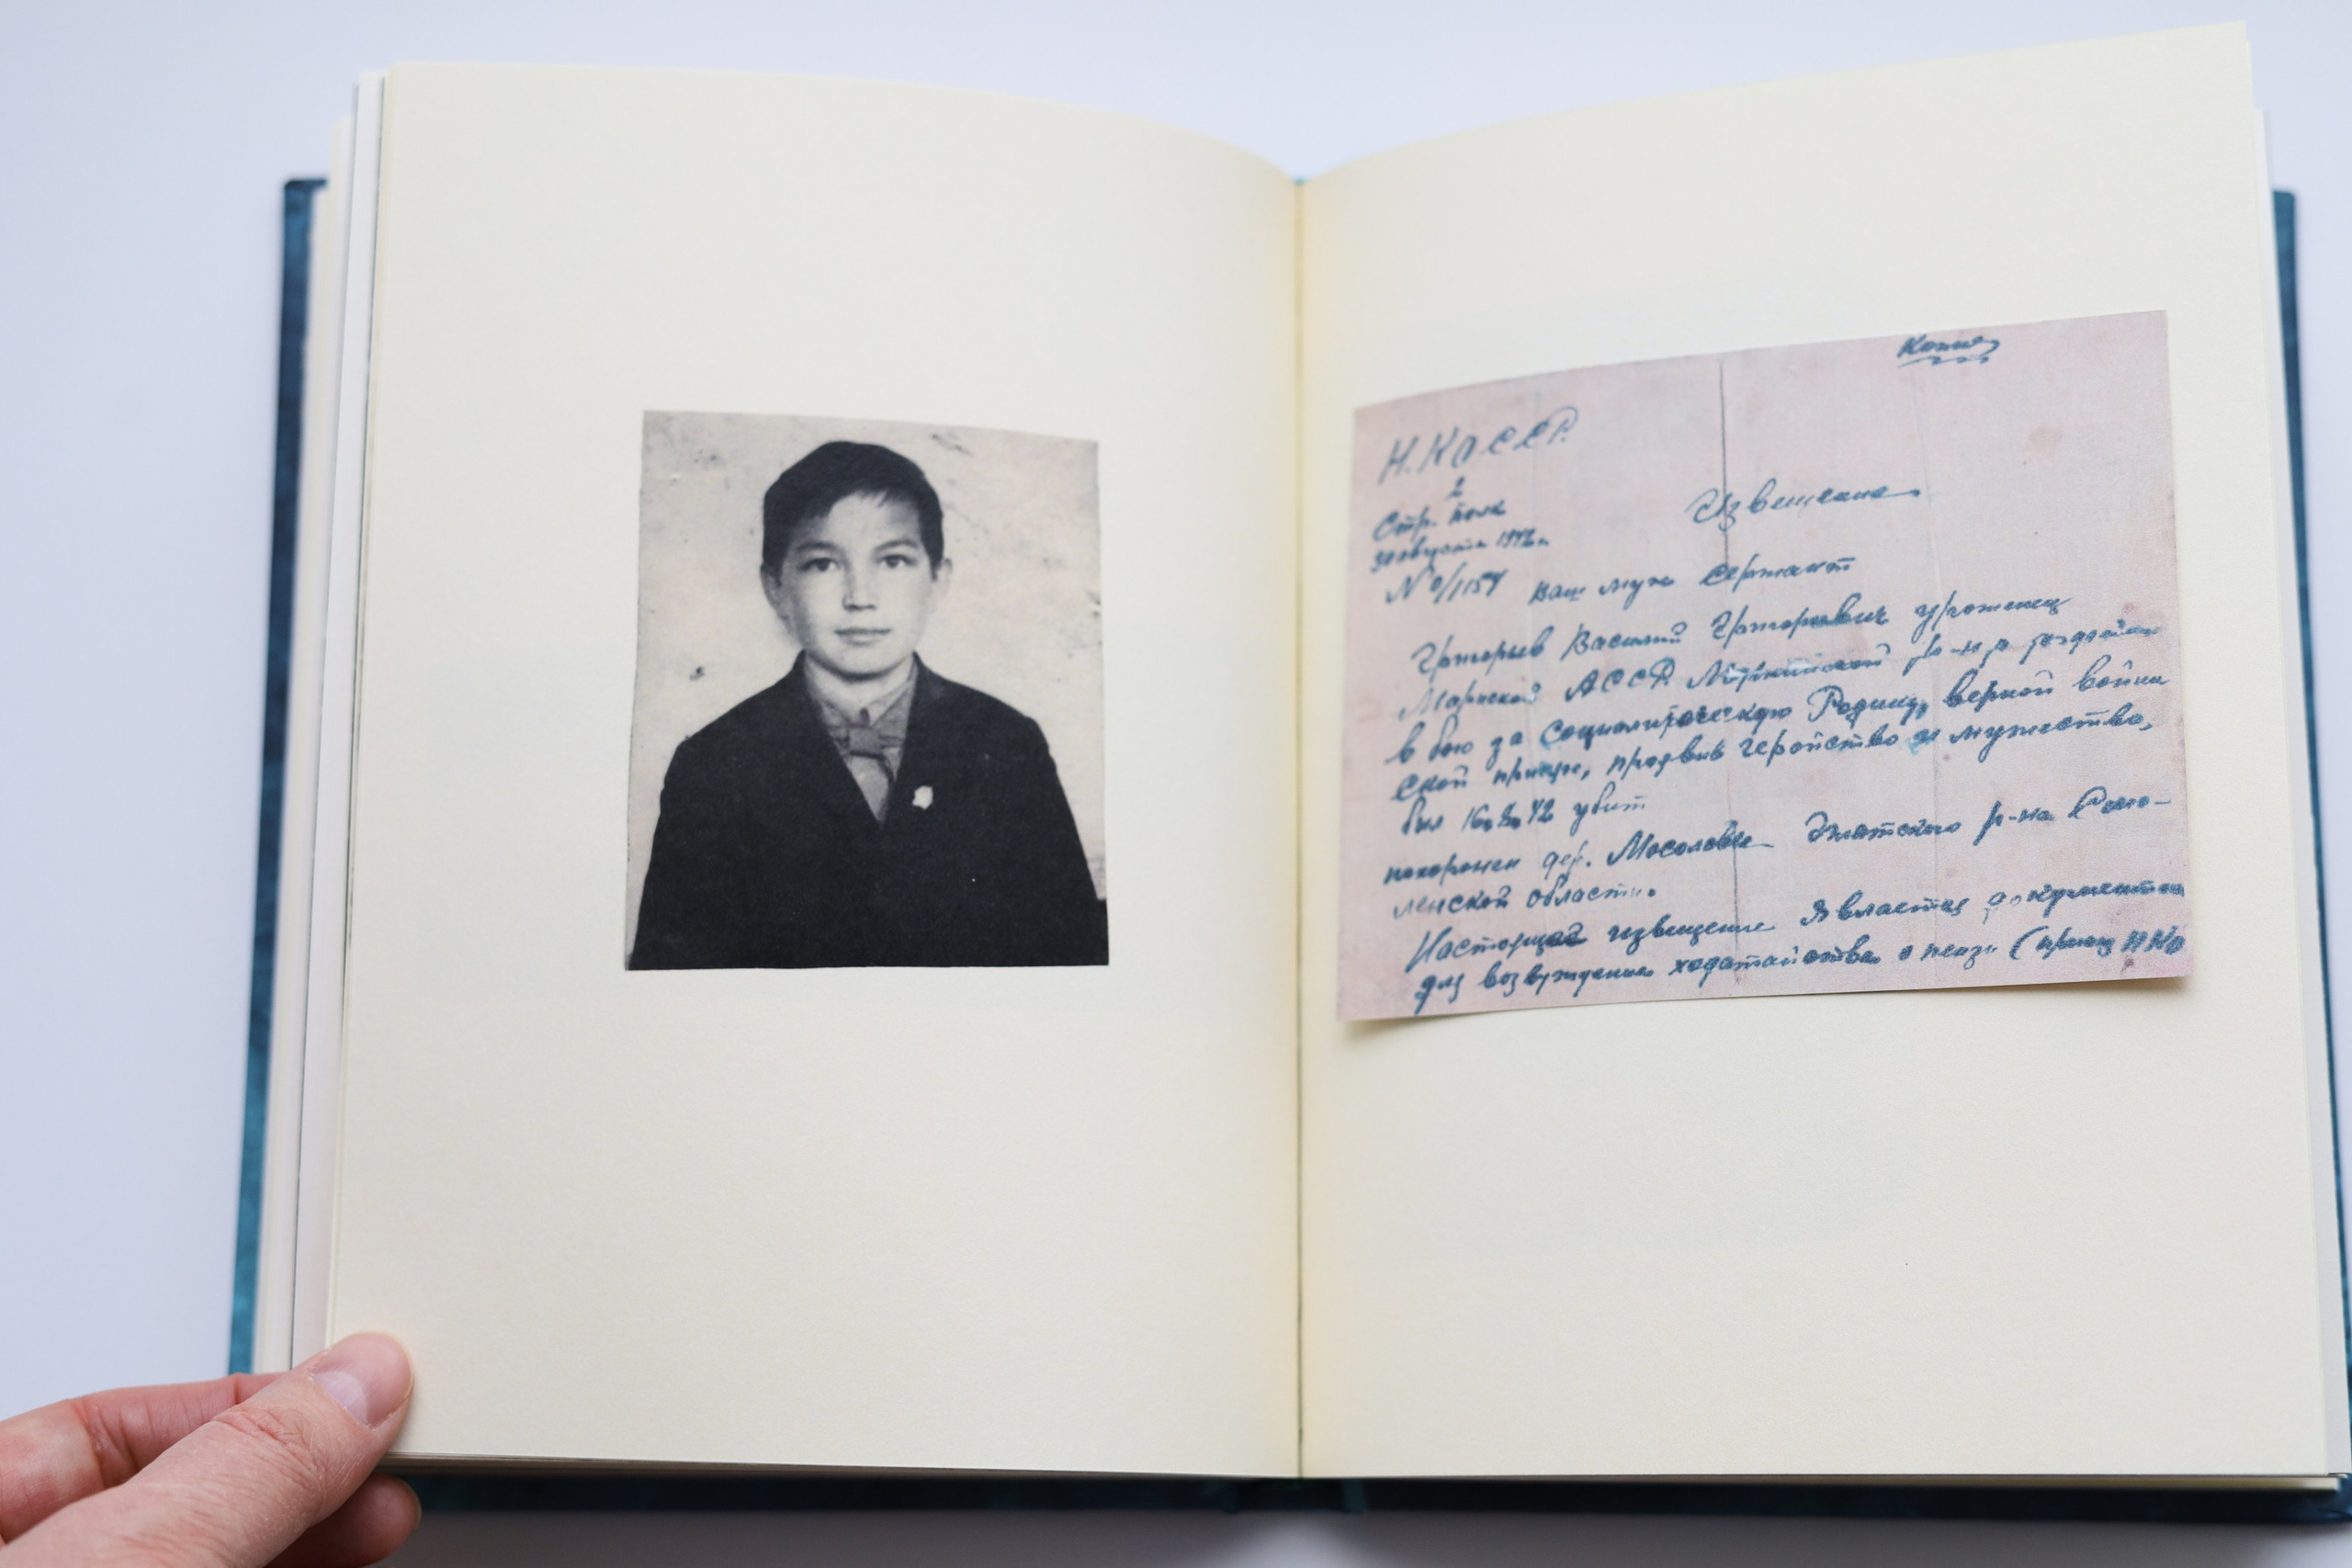 Копия
Н.К.О ССР
2
Стр. полк
30 августа 1942 г.
Извещение
№ 0/1154 Ваш муж сержант
Григорьев Василий Григорьевич уроженец
Марийской АССР р-на
в бою за социалистическую Родину, верной воин
ской присяге, проявив геройство и мужество,
был 42 убит
похоронен дер. р-на Смо-
ленской области.
Настоящее извещение является документом
для возбуждения ходатайства о пенз (приказ НКО